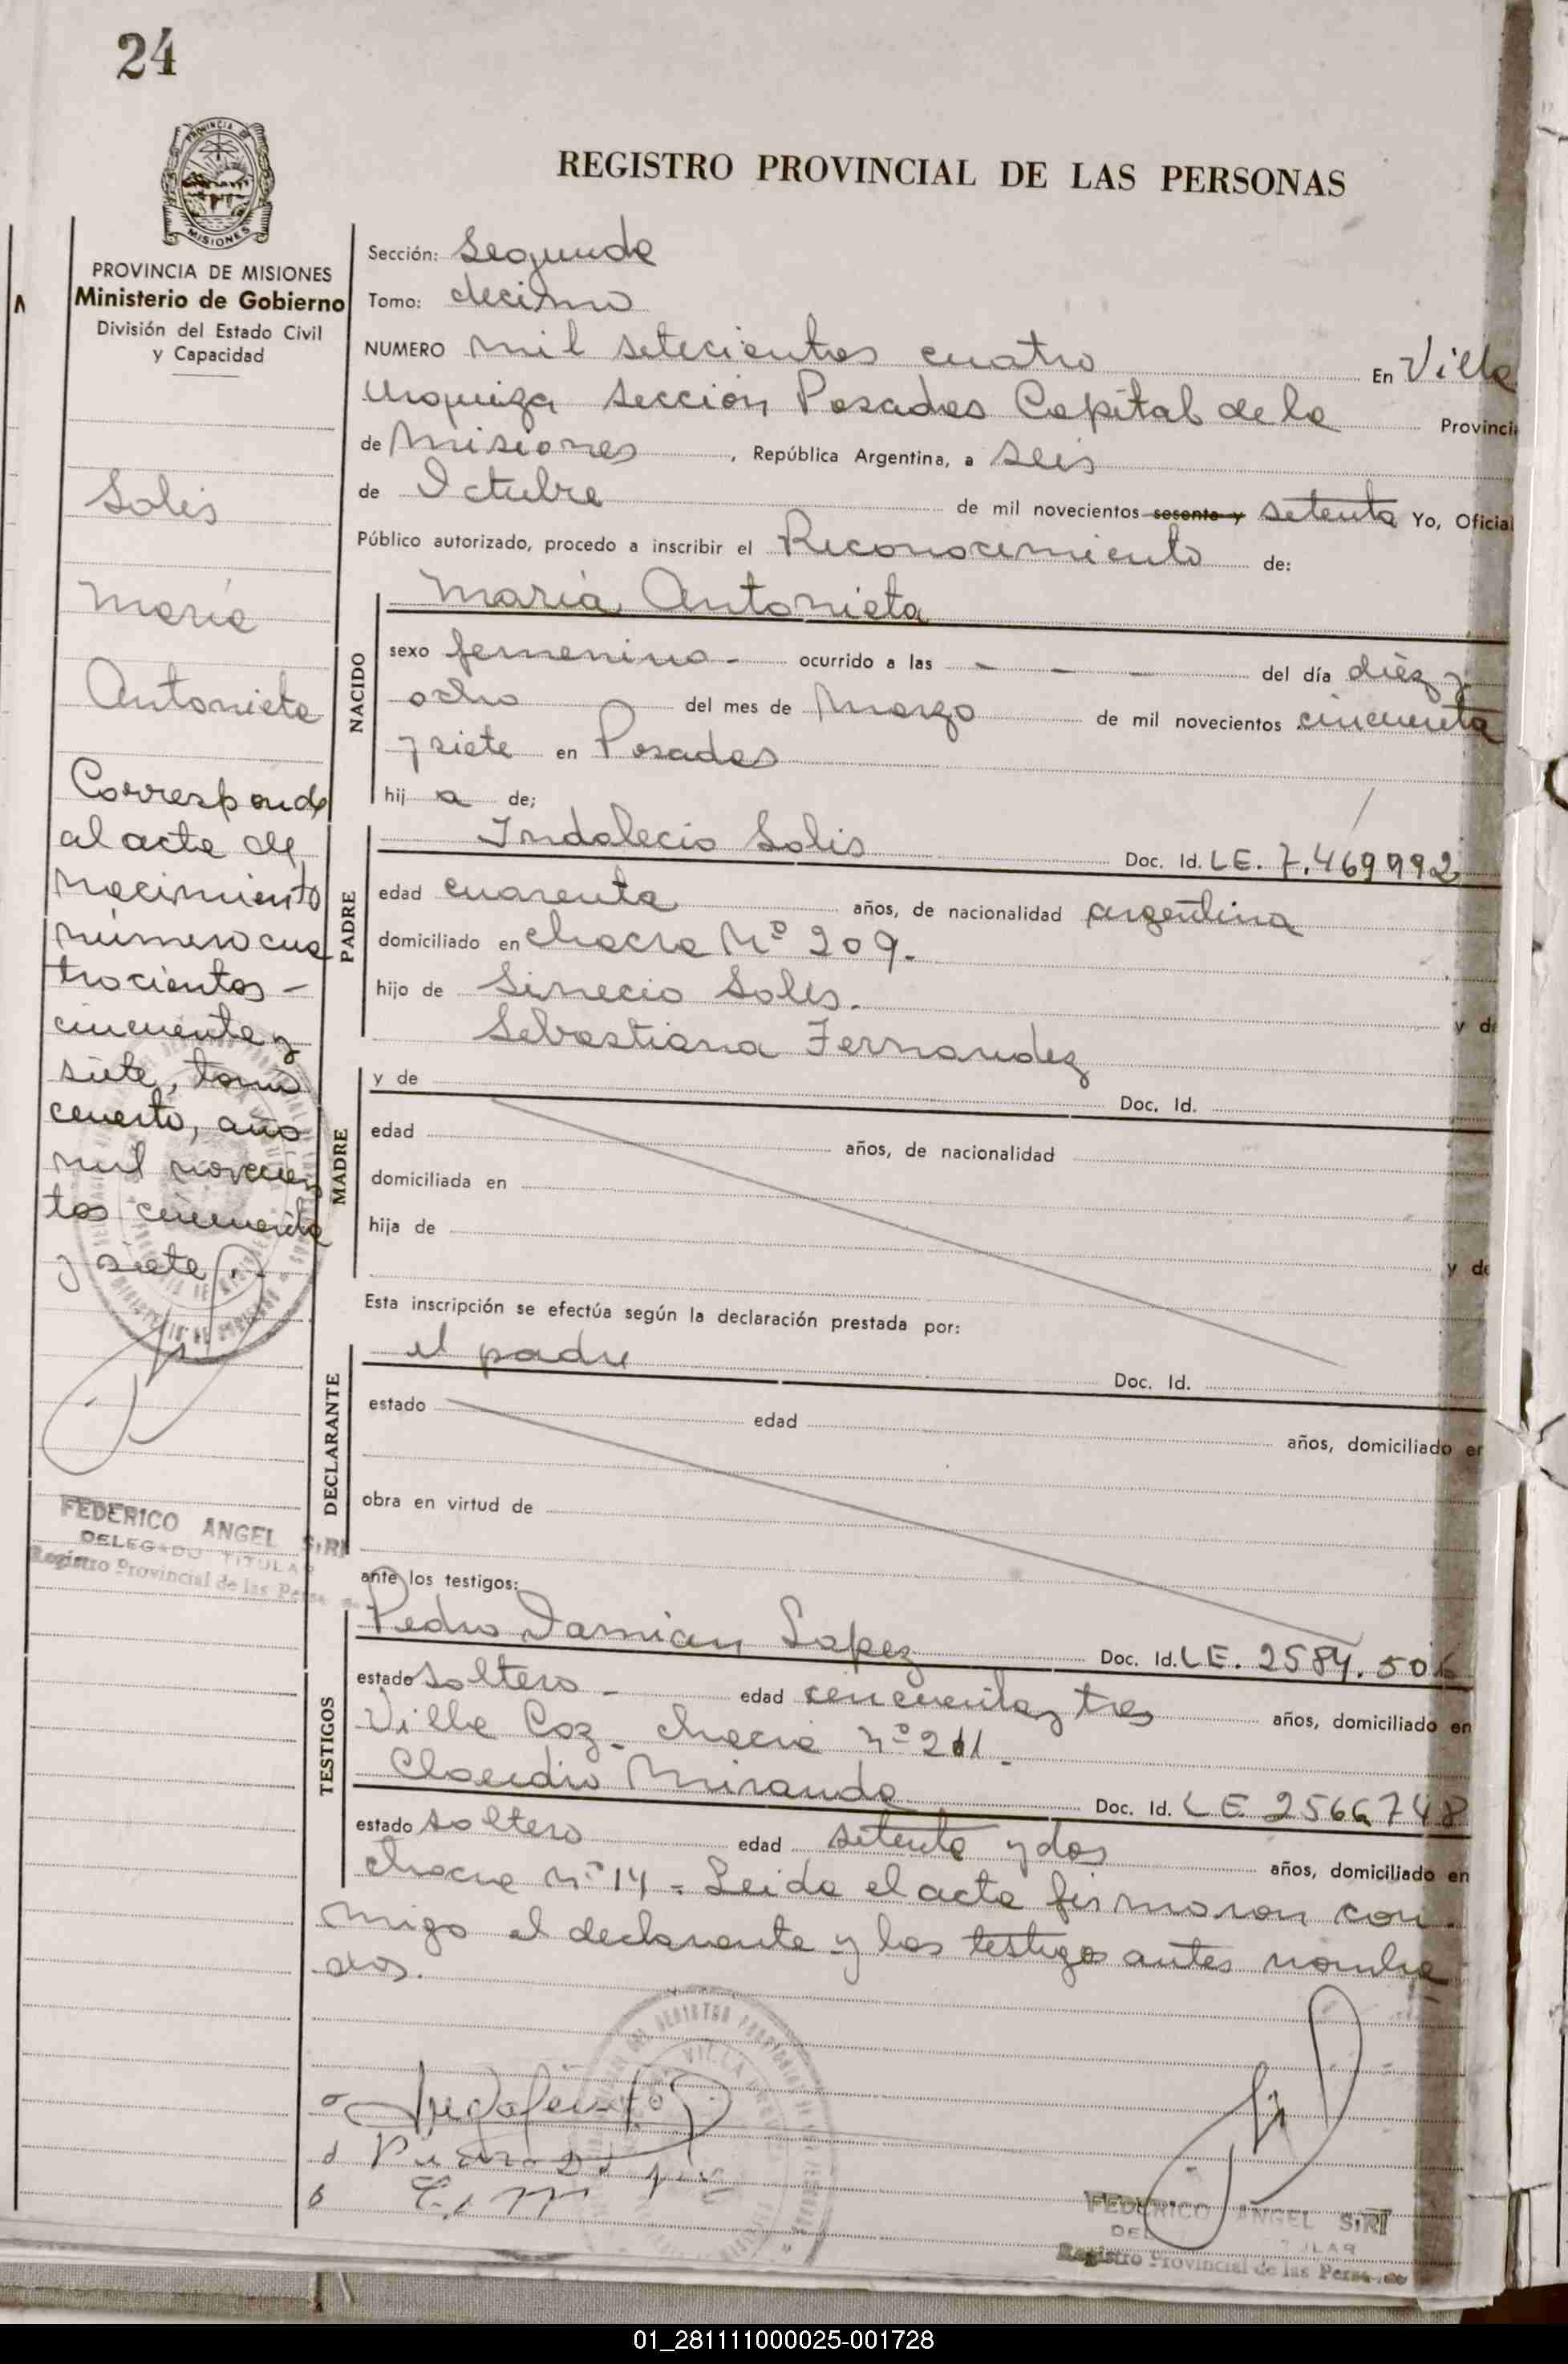 24
PROVINCIA DE MISIONES
REGISTRO PROVINCIAL DE LAS PERSONAS
PROVINCIA DE MISIONES
Ministerio de Gobierno
División del Estado Civil
y Capacidad
Solis
Maria
Antonieta
Corresponde
al acta de
nacimiento
número cua
trocientos -
cincuenta y
siete, tomo
cuarto, año
mil novecien
tos cincuenta
y siete.
FEDERICO ANGEL SIRI
DELEGADO TITULAR
Registro Provincial de las Pers
Sección: Segunda
Tomo: decimo
NUMERO mil setecientos cuatro En Villa
Urquiza sección Posadas Capital de la Provinci
de Misiones, República Argentina, a seis
de Octubre de mil novecientos sesenta y setenta Yo, Oficial
Público autorizado, procedo a inscribir el Reconocimiento de:
NACIDO
Maria Antonieta
sexo femenino - ocurrido a las - - - del día diez y
ocho del mes de Marzo de mil novecientos cincuenta
y siete en Posadas
hij a de;
PADRE
Indalecio Solis Doc. Id. LE. 7.469992
edad cuarenta años, de nacionalidad argentina
domiciliado en chacra Nº 209.-
hijo de Sinecio Solis. y de
Sebastiana Fernandez
MADRE
y de Doc. Id.
edad años, de nacionalidad
domiciliada en
hija de y de
Esta inscripción se efectúa según la declaración prestada por:
DECLARANTE
el padre Doc. Id.
estado edad años, domiciliado en
obra en virtud de
ante los testigos:
TESTIGOS
Pedro Damian Lopez Doc. Id. LE. 2584.506
estado soltero - edad cincuenta y tres años, domiciliado en
Villa Coz - chacra nº 211 -
Claudio Miranda Doc. Id. LE 2566748
estado soltero edad setenta y dos años, domiciliado en
chacra nº 14 = Leida el acta firmaron con
migo el declarante y los testigos antes nombra
dos.
FEDERICO ANGEL SIRI
Registro Provincial de las Pers
01_281111000025-001728